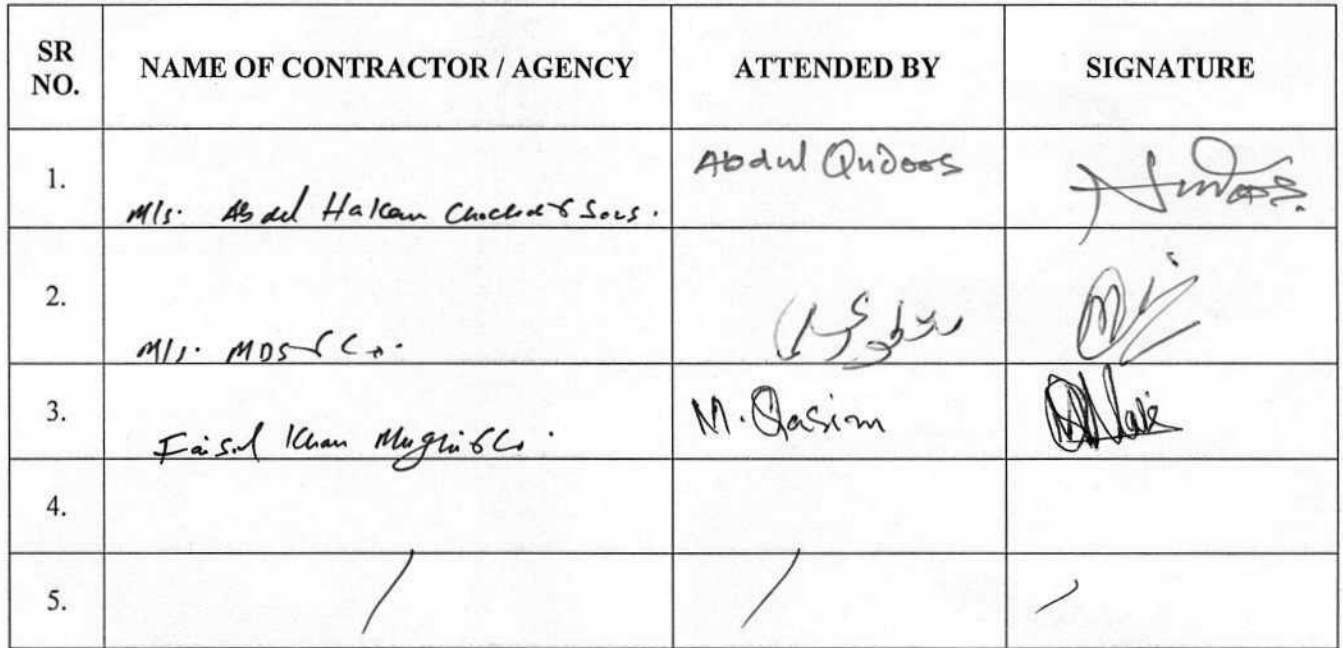 SR NO. NAME OF CONTRACTOR / AGENCY ATTENDED BY SIGNATURE
1. M/s. Abdul Hakeem & Sons. Abdul Qudoos
2. M/s. MDS & Co.
3. Faisal Khan Mughri & Co. M. Qasim
4.
5.